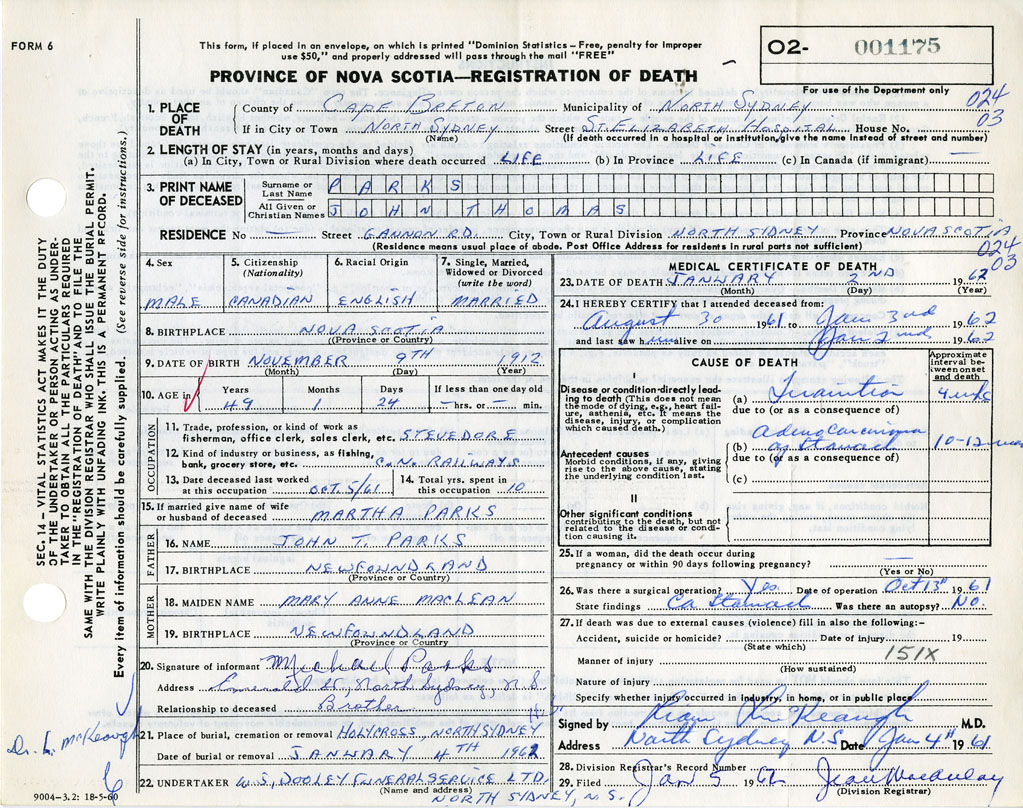 FORM 6
This form, if placed in an envelope, on which is printed "Dominion Statistics – Free, penalty for improper
use $50," and properly addressed will pass through the mail "FREE"
O2- 001175
For use of the Department only
PROVINCE OF NOVA SCOTIA—REGISTRATION OF DEATH
024
03
1. PLACE OF DEATH
County of CAPE BRETON Municipality of NORTH SYDNEY
If in City or Town NORTH SYDNEY Street ST. ELIZABETH HOSPITAL House No.
(If death occurred in hospital or institution, give the name instead of street and number)
2. LENGTH OF STAY (in years, months and days)
(a) In City, Town or Rural Division where death occurred LIFE (b) In Province LIFE (c) In Canada (if immigrant) —
3. PRINT NAME OF DECEASED
Surname or Last Name PARKS
All Given or Christian Names JOHN THOMAS
RESIDENCE No — Street GANNON RD. City, Town or Rural Division NORTH SYDNEY Province NOVA SCOTIA
(Residence means usual place of abode. Post Office Address for residents in rural parts not sufficient)
024
03
4. Sex MALE
5. Citizenship (Nationality) CANADIAN
6. Racial Origin ENGLISH
7. Single, Married, Widowed or Divorced (write the word) MARRIED
8. BIRTHPLACE NOVA SCOTIA
(Province or Country)
9. DATE OF BIRTH NOVEMBER 9TH 1912
(Month) (Day) (Year)
10. AGE in Years Months Days If less than one day old
49 1 24 hrs. or min.
OCCUPATION
11. Trade, profession, or kind of work as
fisherman, office clerk, sales clerk, etc. STEVEDORE
12. Kind of industry or business, as fishing,
bank, grocery store, etc. C.N. RAILWAYS
13. Date deceased last worked at this occupation OCT. 5/61
14. Total yrs. spent in this occupation 10
15. If married give name of wife
or husband of deceased MARTHA PARKS
FATHER
16. NAME JOHN T. PARKS
17. BIRTHPLACE NEWFOUNDLAND
(Province or Country)
MOTHER
18. MAIDEN NAME MARY ANNE MACLEAN
19. BIRTHPLACE NEWFOUNDLAND
(Province or Country
20. Signature of informant Michael Parks
Address St., North Sydney, N.S.
Relationship to deceased Brother
21. Place of burial, cremation or removal HOLYCROSS, NORTH SYDNEY
Date of burial or removal JANUARY 4TH 1962
22. UNDERTAKER W.S. DOOLEY FUNERAL SERVICE LTD.
(Name and address)
NORTH SYDNEY, N.S.
MEDICAL CERTIFICATE OF DEATH
23. DATE OF DEATH JANUARY 2ND 1962
(Month) (Day) (Year)
24. I HEREBY CERTIFY that I attended deceased from:
August 30 1961 to Jan 3rd 1962
and last saw him alive on Jan 2nd 1962
CAUSE OF DEATH
Approximate interval between onset and death
I
Disease or condition directly leading to death (This does not mean the mode of dying, e.g., heart failure, asthenia, etc. It means the disease, injury, or complication which caused death.)
(a) Inanition 4 wks
due to (or as a consequence of)
Adenocarcinoma
(b) of stomach 10-12 mos
due to (or as a consequence of)
Antecedent causes
Morbid conditions, if any, giving rise to the above cause, stating the underlying condition last.
(c)
II
Other significant conditions
contributing to the death, but not related to the disease or condition causing it.
25. If a woman, did the death occur during
pregnancy or within 90 days following pregnancy? —
(Yes or No)
26. Was there a surgical operation? Yes Date of operation Oct 13th 1961
State findings Ca Stomach Was there an autopsy? No.
27. If death was due to external causes (violence) fill in also the following:–
Accident, suicide or homicide? Date of injury 19
(State which)
151X
Manner of injury
(How sustained)
Nature of injury
Specify whether injury occurred in industry, in home, or in public place
Signed by McKeough M.D.
Address North Sydney N.S. Date Jan 4th 1961
28. Division Registrar's Record Number
29. Filed Jan 5 1962 Jean Macaulay
(Division Registrar)
SEC. 14 – VITAL STATISTICS ACT MAKES IT THE DUTY
OF THE UNDERTAKER OR PERSON ACTING AS UNDER-
TAKER TO OBTAIN ALL THE PARTICULARS REQUIRED
IN THE "REGISTRATION OF DEATH" AND TO FILE THE
SAME WITH THE DIVISION REGISTRAR WHO SHALL ISSUE THE BURIAL PERMIT.
WRITE PLAINLY WITH UNFADING INK. THIS IS A PERMANENT RECORD.
Every item of information should be carefully supplied. (See reverse side for instructions.)
Dr. L. McKeough
9004-3.2: 18-5-60